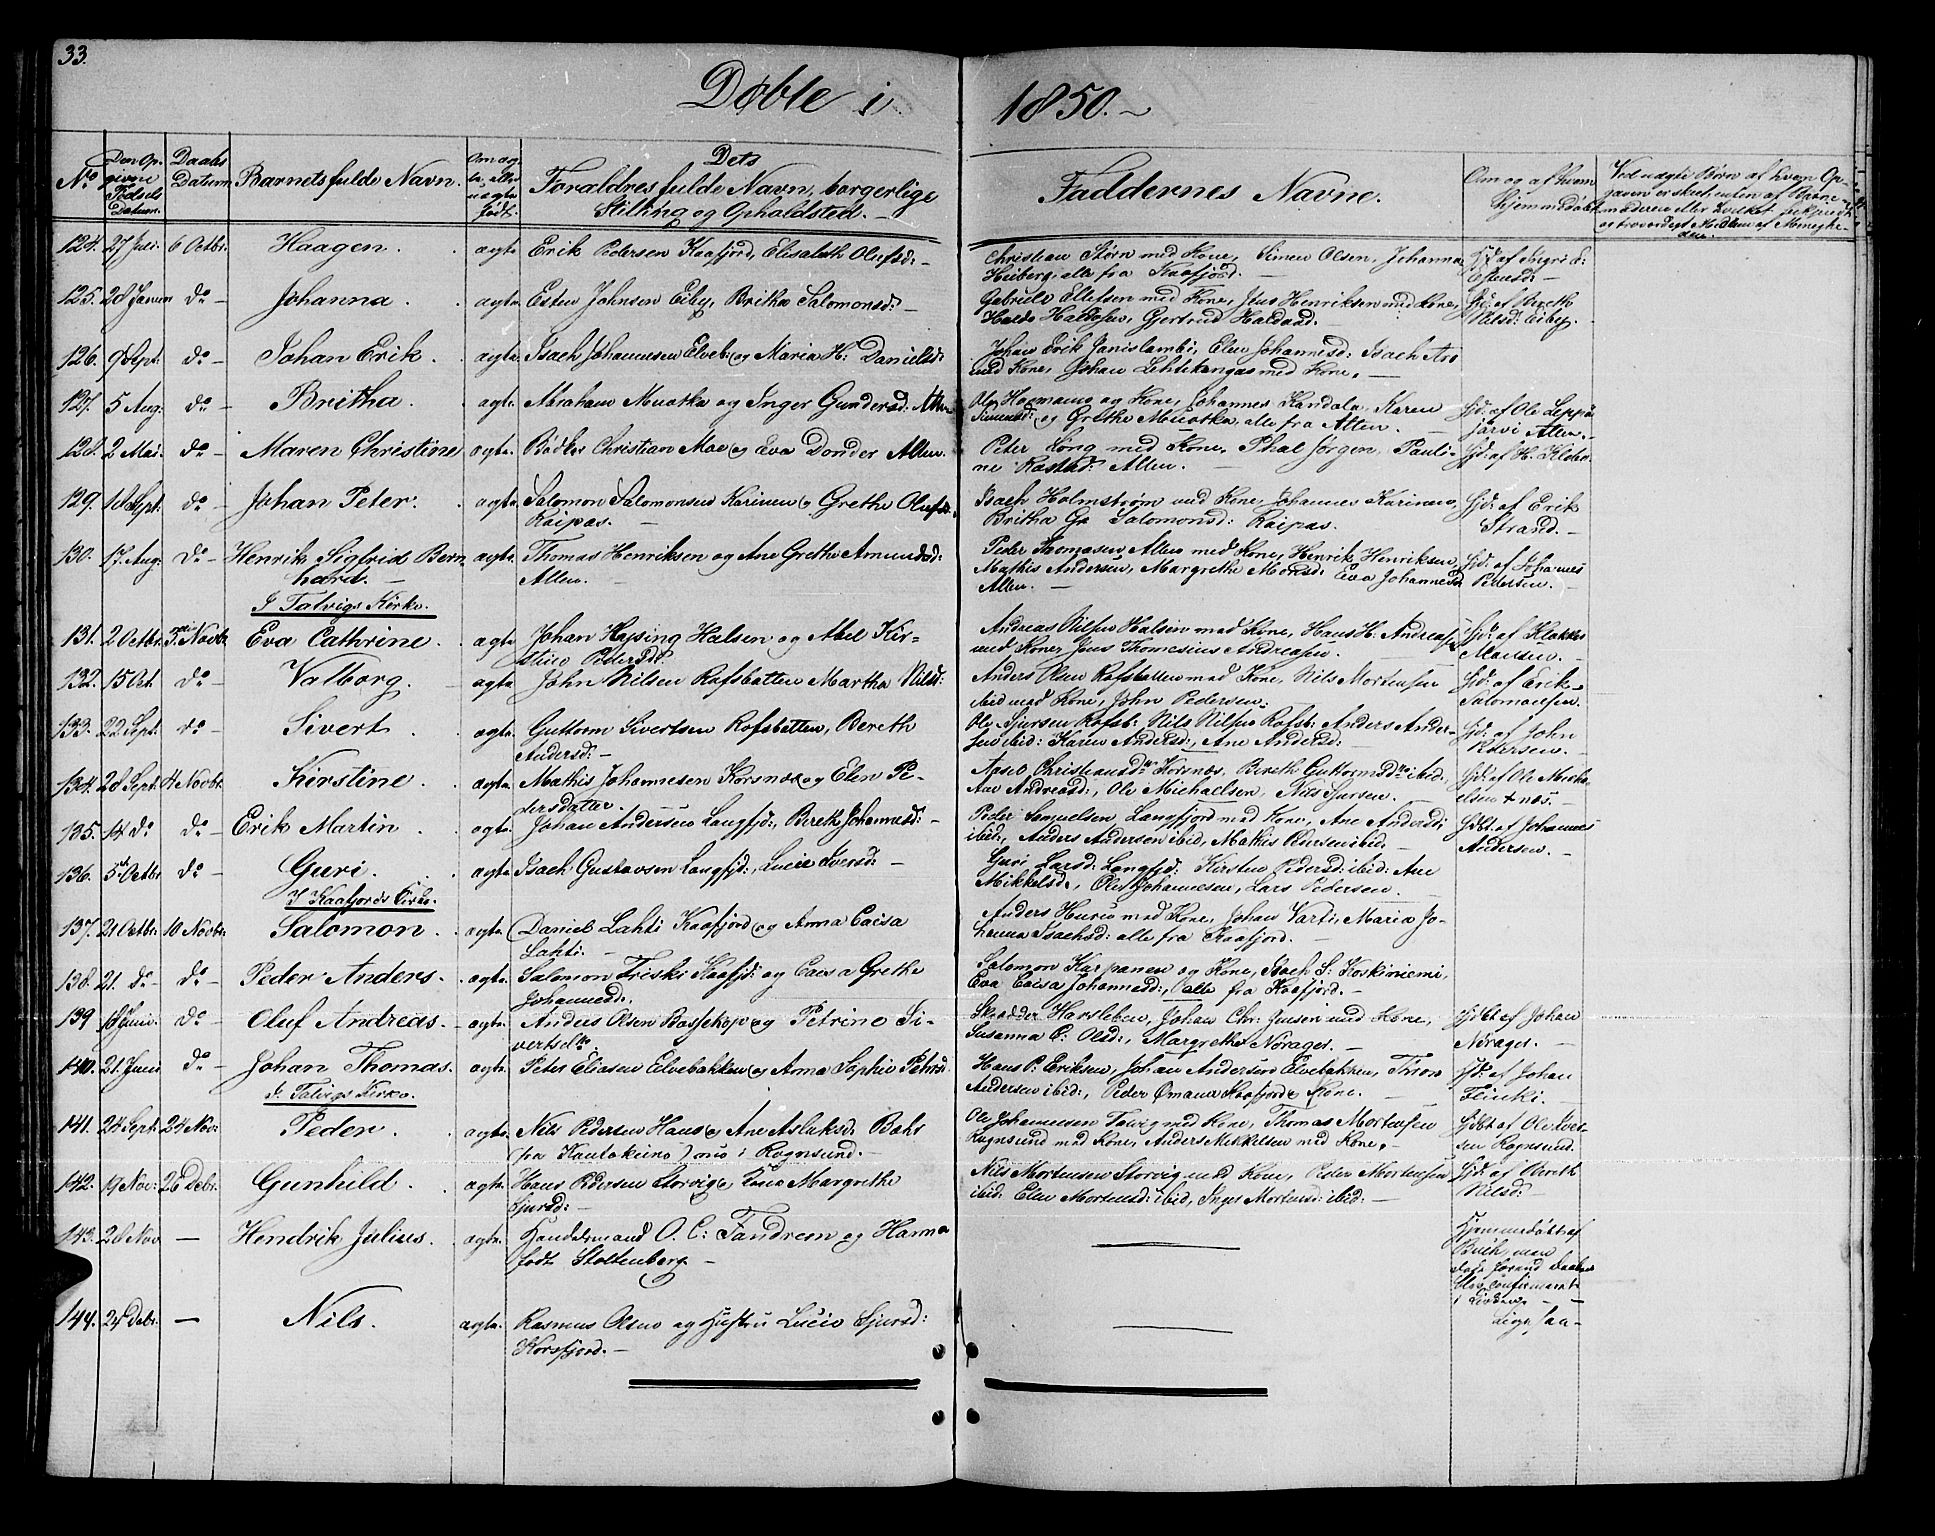 33.
Døbte i 1850.
No. Den Opgivne Fødsels Datum. Daabs Datum Barnets fulde Navn. Om ægte, eller uægte født. Dets Forældres fulde Navn, borgerlige Stilling og Opholdsted. Faddernes Navne. Om og af hvem hjemmedøbt
124. 27 Juli. 6 Octbr. Haagen. ægte Erik Pedersen Kaafjord, Elisabeth Olufsd: Christian Størn med Kone, Simon Olsen, Johanna
Heiberg, alle fra Kaafjord. Hjd: af Ingrid
125. 28 Do Johanna. ægte. Esten Johnsen Eiby, Britha Salomonsd: Gabriel Ellefsen med Kone, Jens Henriksen med Kone,
Gjertrud Hjd: af Bereth Nilsd: Eiby.
126. Sept. Do Johan Erik. ægte. Isach Johannesen Elveb: og Maria H: Danielsd: Johan Erik Janislambi, Elen Johannesd: Isach Aro
med Kone, Johan Lehtikangas med Kone.
127. 5 Aug. Do Britha. ægte. Abraham Muotka og Inger Gundersd: Alten Ole Hogmann og Kone, Johannes Kandala, Karen
Simonsd: og Grethe Muotka, alle fra Alten. Hjd: af Ole Leppäjärvi Alten.
128. 2 Mai. Do Maren Christine ægte. Bødker Christian Moe og Eva Donder Alten. Peter Long med Kone, Phal Jørgen, Pauline Alten. Hjd: af H.
129. 18 Sept. Do Johan Peter. ægte. Salomon Salomonsen Karinen og Grethe Olufsd: Raipas. Isach Holmstrøm med Kone, Johannes Karinen,
Britha Gr. Salomonsd: Raipas. Hjd: af Erik Strand.
130. 17. Aug. Do Henrik Sigfrid Bernhard. ægte. Thomas Henriksen og Ane Grethe Amundsd: Alten. Peder Thomasen, Alten med Kone, Henrik Henriksen,
Mathis Andersen, Margrethe Monsd: Eva Johannesd: Alten. Hjd: af Johannes Pedersen.
I Talvigs Kirke.
131. 2 Octbr. 3die Novbr Eva Cathrine. ægte. Johan Hysing Halsen og Abel Kirstine Pedersdt. Andreas Nilsen Halsen med Kone, Hans H. Andreasen
med Kone, Jens Thomesius Andreasen. Hjd: af Klokker
132. 15 Oct. Do Valborg. ægte John Nilsen Rafsbotten, Martha Nilsd: Anders Olsen Rafsbotten med Kone, Nils Mortensen
ibid med Kone, John Pedersen. Hjd: af Erik Salomonsen.
133. 22 Sept. Do Sivert. ægte. Guttorm Sivertsen Rafsbotten, Bereth Andersd: Ole Sjursen Rafsb: Nils Nilsen Rafsb: Anders Andersen ibid: Karen Andersd:, Ane Andersd: Hjd: af John Pedersen.
134. 28 Sept. 4 Novbr. Kirstine. ægte. Mathis Johannesen Korsnæs og Elen Pedersdatter. Christiansd: Korsnæs, Bereth Guttormsd: ibid,
Ane Andreasd:, Ole Michaelsen, Nils Sjursen. Hjd: af Ole Michaelsen
135. 14 Do Do Erik Martin. ægte. Johan Andersen Langfjd:, Bereth Johannesd: Peder Samuelsen Langfjord med Kone, Ane Andersd:
ibid:, Anders Andersen ibid, Mathis Pedersen ibid. Hjdbt af Johannes Andersen.
136. 5 Octbr. Do Guri. ægte. Isach Gustavsen Langfjd:, Lucie Iversd: Guri Larsd: Langfjd: Kirsten Pedersd: ibid: Ane
Mikkelsd:, Ole Johannesen, Lars Pedersen.
I Kaafjords Kirke.
137. 21 Octbr. 10 Novbr. Salomon. ægte. Daniel Lahti Kaafjord og Anna Caisa Lahti. Anders Huru med Kone, Johan Varti, Maria Johanna Isachsd: alle fra Kaafjord.
138. 21. Do Do Peder Anders. ægte. Salomon Friski Kaafjd: og Caisa Grethe Johannesd:. Salomon Karpanen og Kone, Isach S. Koskiniemi,
Eva Caisa Johannesd:, alle fra Kaafjord.
139 18 Juni. Do Oluf Andreas. ægte. Anders Olsen Bossekop og Petrine Sivertsdtr. Skrædder Harsleben, Johan Chr. Jensen med Kone,
Susanna C: Olsd:, Margrethe Norager. Hjdbt af Johan Norager.
140. 21. Juni Do Johan Thomas. ægte. Peter Eliasen Elvebakken og Anna Sophie Petersd. Hans P. Eriksen, Johan Andersen Elvebakken, Thron
Andersen ibid:, Peder Omana Kaafjord & Kone. Hjd: af Johan Finki.
I Talvigs Kirke.
141. 24 Sept. 24 Nov. Peder. ægte. Nils Pedersen Haus og Ane Aslaksd. Bahr
(fra Kautokeino) nu i Rognsund. Ole Johannesen Talvig med Kone, Thomas Mortensen
Rognsund med Kone, Anders Mikkelsen med Kone. Hjdbt af Ole Iversen Rognsund.
142. 19 Nov: 26 Debr. Gunhild. ægte. Hans Pedersen Storvig & Kone Margrethe Sjursd: Nils Mortensen Storvig med Kone, Peder Mortensen
ibid: Elen Mortensd: ibid, Inger Mortensd: ibid: Hjd: af Bereth Nilsd:
143. 28 Nov — Hendrik Julius. ægte. Handelsmand O. C: Fandrem og Hanna
født Stoltenberg. — Hjemmedøbt af Buch, men døde forend Daaben blev confirmeret i Kirken.
144. 24 Debr. — Nils. ægte. Rasmus Olsen og Hustru Lucie Sjursd:
Korsfjord. — Ligesaa